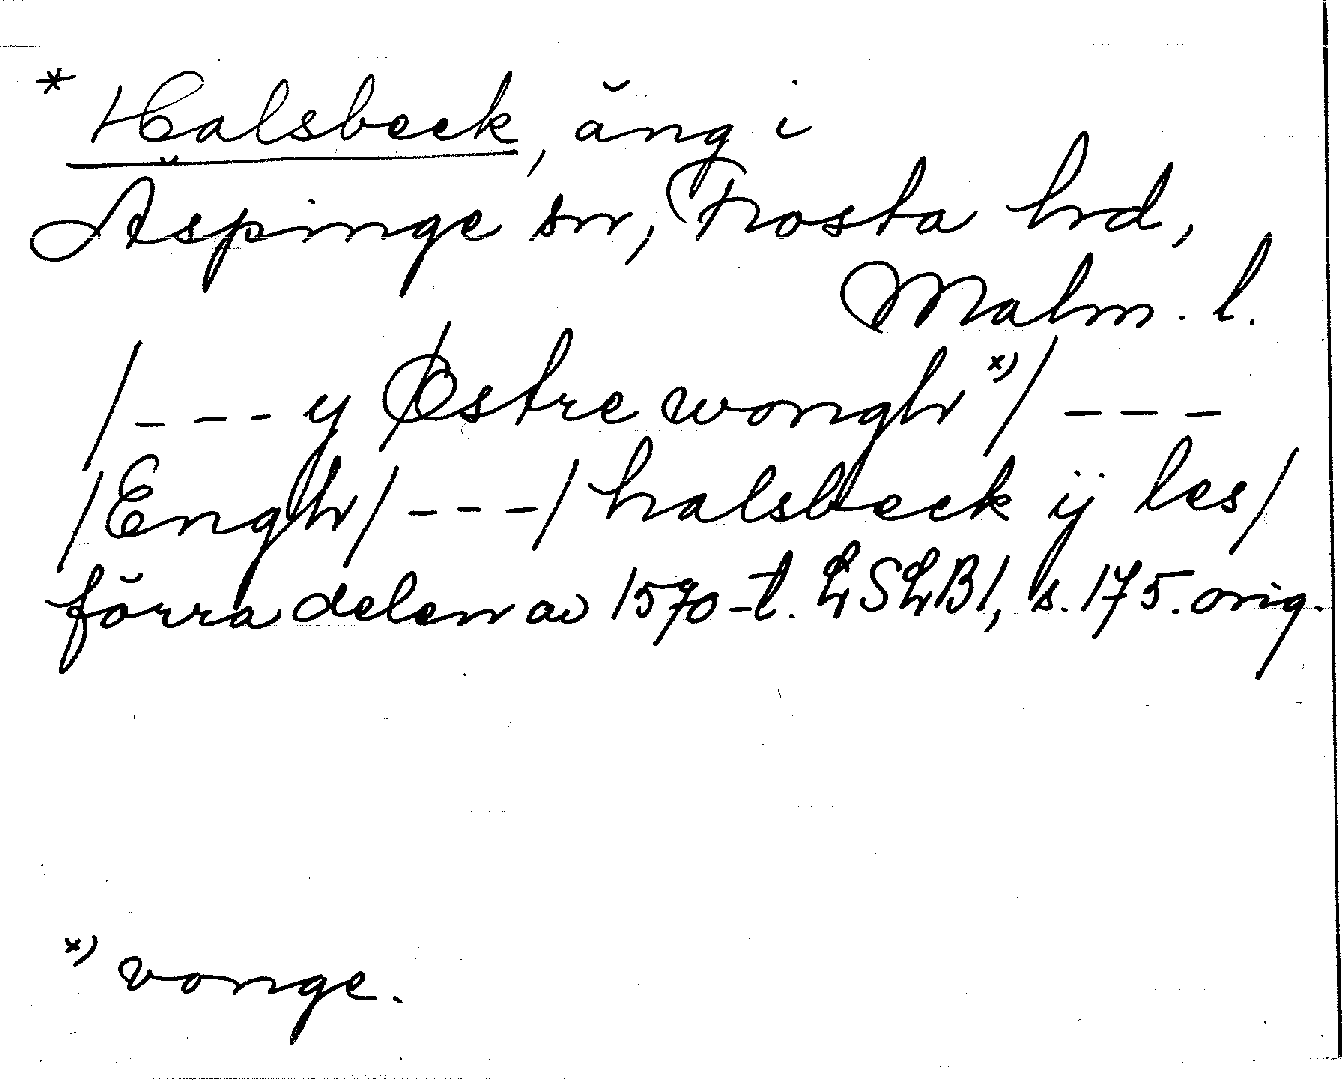 * Halsbeck, äng i
Äspinge sn, Frosta hd,
Malm. l.
/--- y Østre wongh x)/ ---
/Engh/ ---/ halsbeck ij les/
förra delen av 1570-t. LSLB1, s. 175. orig.
x) vonge.